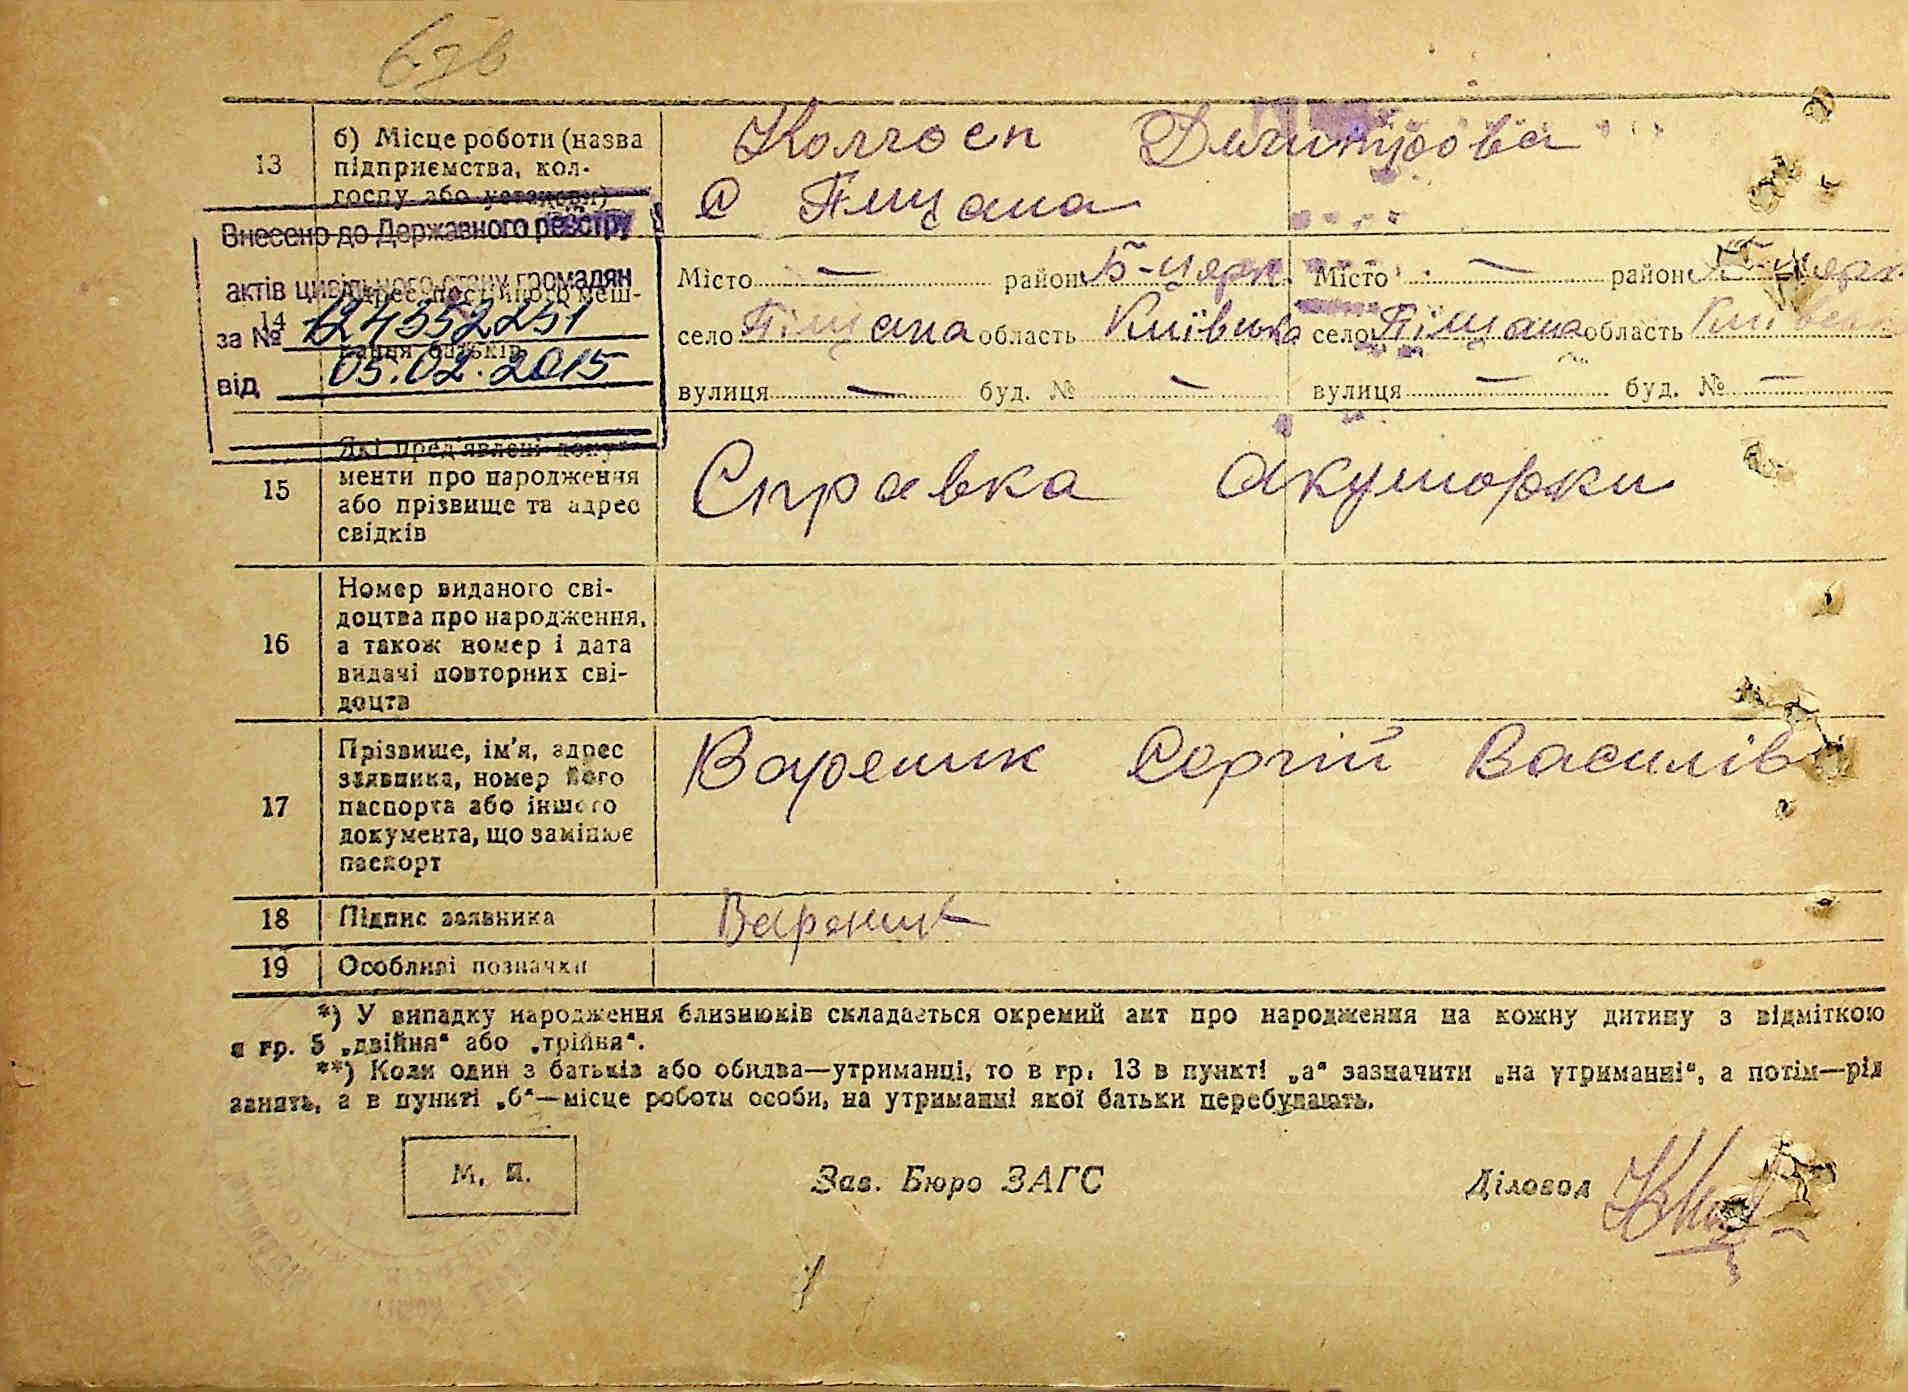 13 б) Місце роботи (назва підприємства, колгоспу або установи)
Колгосп Димитрова
с Піщана
Внесено до Державного реєстру
актів цивільного стану громадян
за № 124552251
від 05.02.2015
14 Адрес постійного мешкання батьків
Місто — район Б-Церк Місто — район Б-Церк
село Піщана область Київська село Піщана область Київська
вулиця — буд. № — вулиця — буд. № —
15 Які пред'явлені документи про народження або прізвище та адрес свідків
Справка акушорки
16 Номер виданого свідоцтва про народження, а також номер і дата видачі повторних свідоцтв
17 Прізвище, ім'я, адрес заявника, номер його паспорта або іншого документа, що замінює паспорт
Вареник Сергій Василів
18 Підпис заявника Вареник
19 Особливі позначки
*) У випадку народження близнюків складається окремий акт про народження на кожну дитину з відміткою
в гр. 5 „двійня“ або „трійня“.
**) Коли один з батьків або обидва—утриманці, то в гр. 13 в пункті „а“ зазначити „на утриманні“, а потім—рід
занять, а в пункті „б“—місце роботи особи, на утриманні якої батьки перебувають.
М. П. Зав. Бюро ЗАГС Діловод